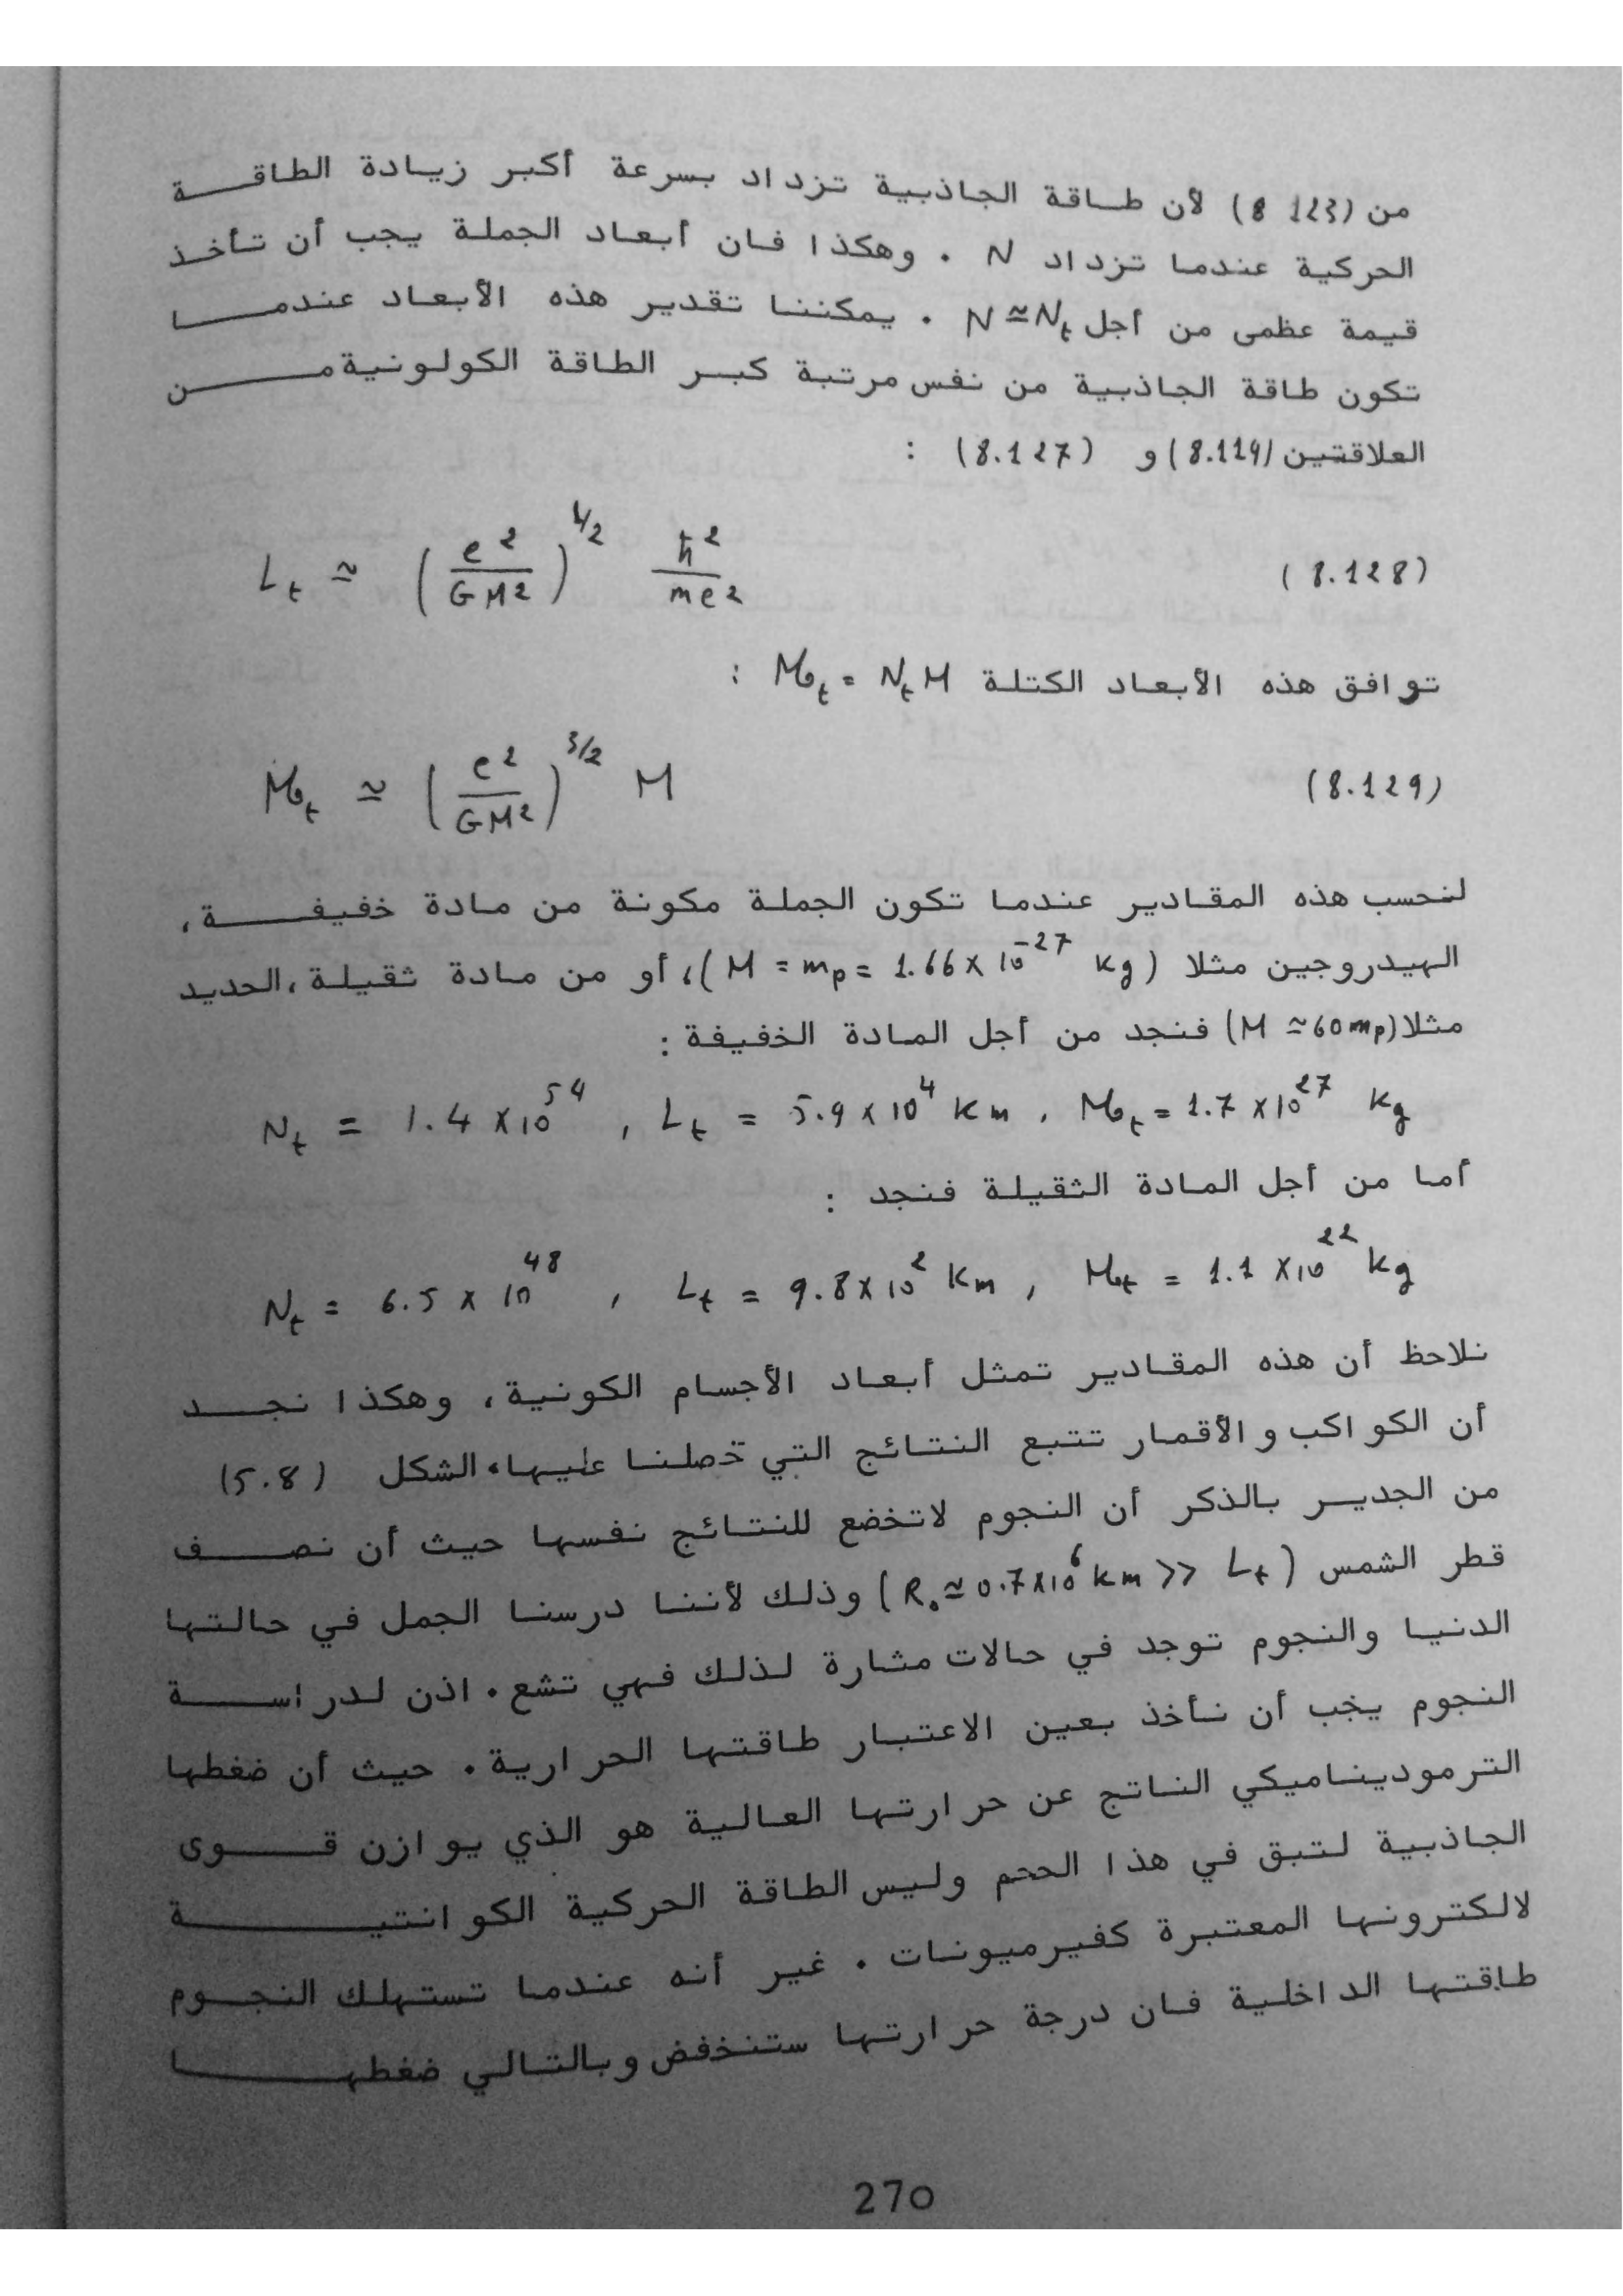 من (8 123) لأن طاقة الجاذبية تزداد بسرعة أكبر زيادة الطاقة
الحركية عندما تزداد N . وهكذا فان أبعاد الجملة يجب أن تأخذ
قيمة عظمى من أجل N≃Nt . يمكننا تقدير هذه الأبعاد عندما
تكون طاقة الجاذبية من نفس مرتبة كبر الطاقة الكولونية من
العلاقتين (8.119) و (8.127) :
Lt ≃ (e²/GM²)^1/2 ħ²/me² (8.128)
توافق هذه الأبعاد الكتلة Mot = Nt M :
Mot ≃ (e²/GM²)^3/2 M (8.129)
لنحسب هذه المقادير عندما تكون الجملة مكونة من مادة خفيفة،
الهيدروجين مثلا (M = mp = 1.66 × 10^-27 kg)، أو من مادة ثقيلة، الحديد
مثلا (M ≃ 60 mp) فنجد من أجل المادة الخفيفة :
Nt = 1.4 × 10^54 , Lt = 5.9 × 10^4 Km , Mot = 1.7 × 10^27 kg
أما من أجل المادة الثقيلة فنجد :
Nt = 6.5 × 10^48 , Lt = 9.8 × 10^2 Km , Mot = 1.1 × 10^22 kg
نلاحظ أن هذه المقادير تمثل أبعاد الأجسام الكونية، وهكذا نجد
أن الكواكب والأقمار تتبع النتائج التي حصلنا عليها، الشكل (5.8)
من الجدير بالذكر أن النجوم لاتخضع للنتائج نفسها حيث أن نصف
قطر الشمس (R. ≃ 0.7×10^6 km >> Lt) وذلك لأننا درسنا الجمل في حالتها
الدنيا والنجوم توجد في حالات مثارة لذلك فهي تشع . اذن لدراسة
النجوم يجب أن نأخذ بعين الاعتبار طاقتها الحرارية . حيث أن ضغطها
الترموديناميكي الناتج عن حرارتها العالية هو الذي يوازن قوى
الجاذبية لتبق في هذا الحجم وليس الطاقة الحركية الكوانتية
لالكترونها المعتبرة كفيرميونات . غير أنه عندما تستهلك النجوم
طاقتها الداخلية فان درجة حرارتها ستنخفض وبالتالي ضغطها
270